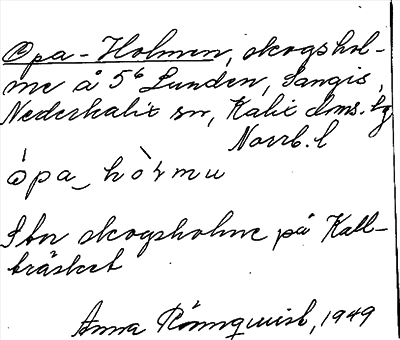 Opa-Holmen, skogshol-
me å 5⁶ Lunden, Sangis,
Nederkalix sn, Kalix doms. lg
Norrb. l
ò́pa_hòrmu
Stor skogsholme på Kall-
träsket
Anna Rönnqvist, 1949